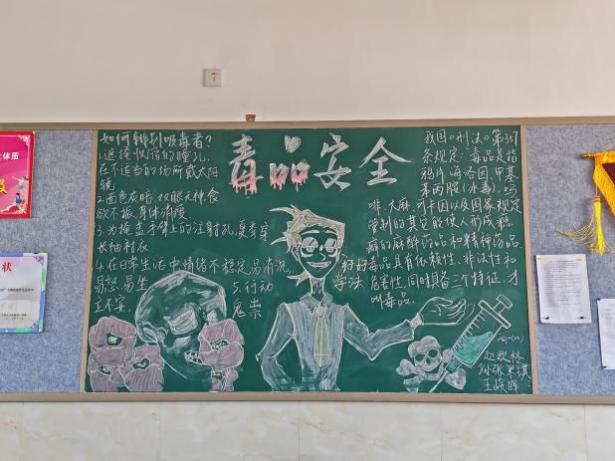 毒品安全
如何辨别吸毒者?
1.遮掩收缩的瞳孔,
在不适当的场所戴太阳
镜
2.面色灰暗、双眼无神、食
欲不振、身体消瘦
3.为掩盖手臂上的注射孔,夏季穿
长袖衬衣
4.在日常生活中情绪不稳定,易
易怒、易生
5.行动
鬼祟
好好
学法
我国《刑法》第357
条规定:毒品是指
鸦片、海洛因、甲基
苯丙胺(冰毒)、吗
啡、大麻、可卡因以及国家规定
管制的其它能使人形成瘾
癖的麻醉药品和精神药品
毒品具有依赖性、非法性和
危害性,同时具备三个特征,才
叫毒品。
体质
状